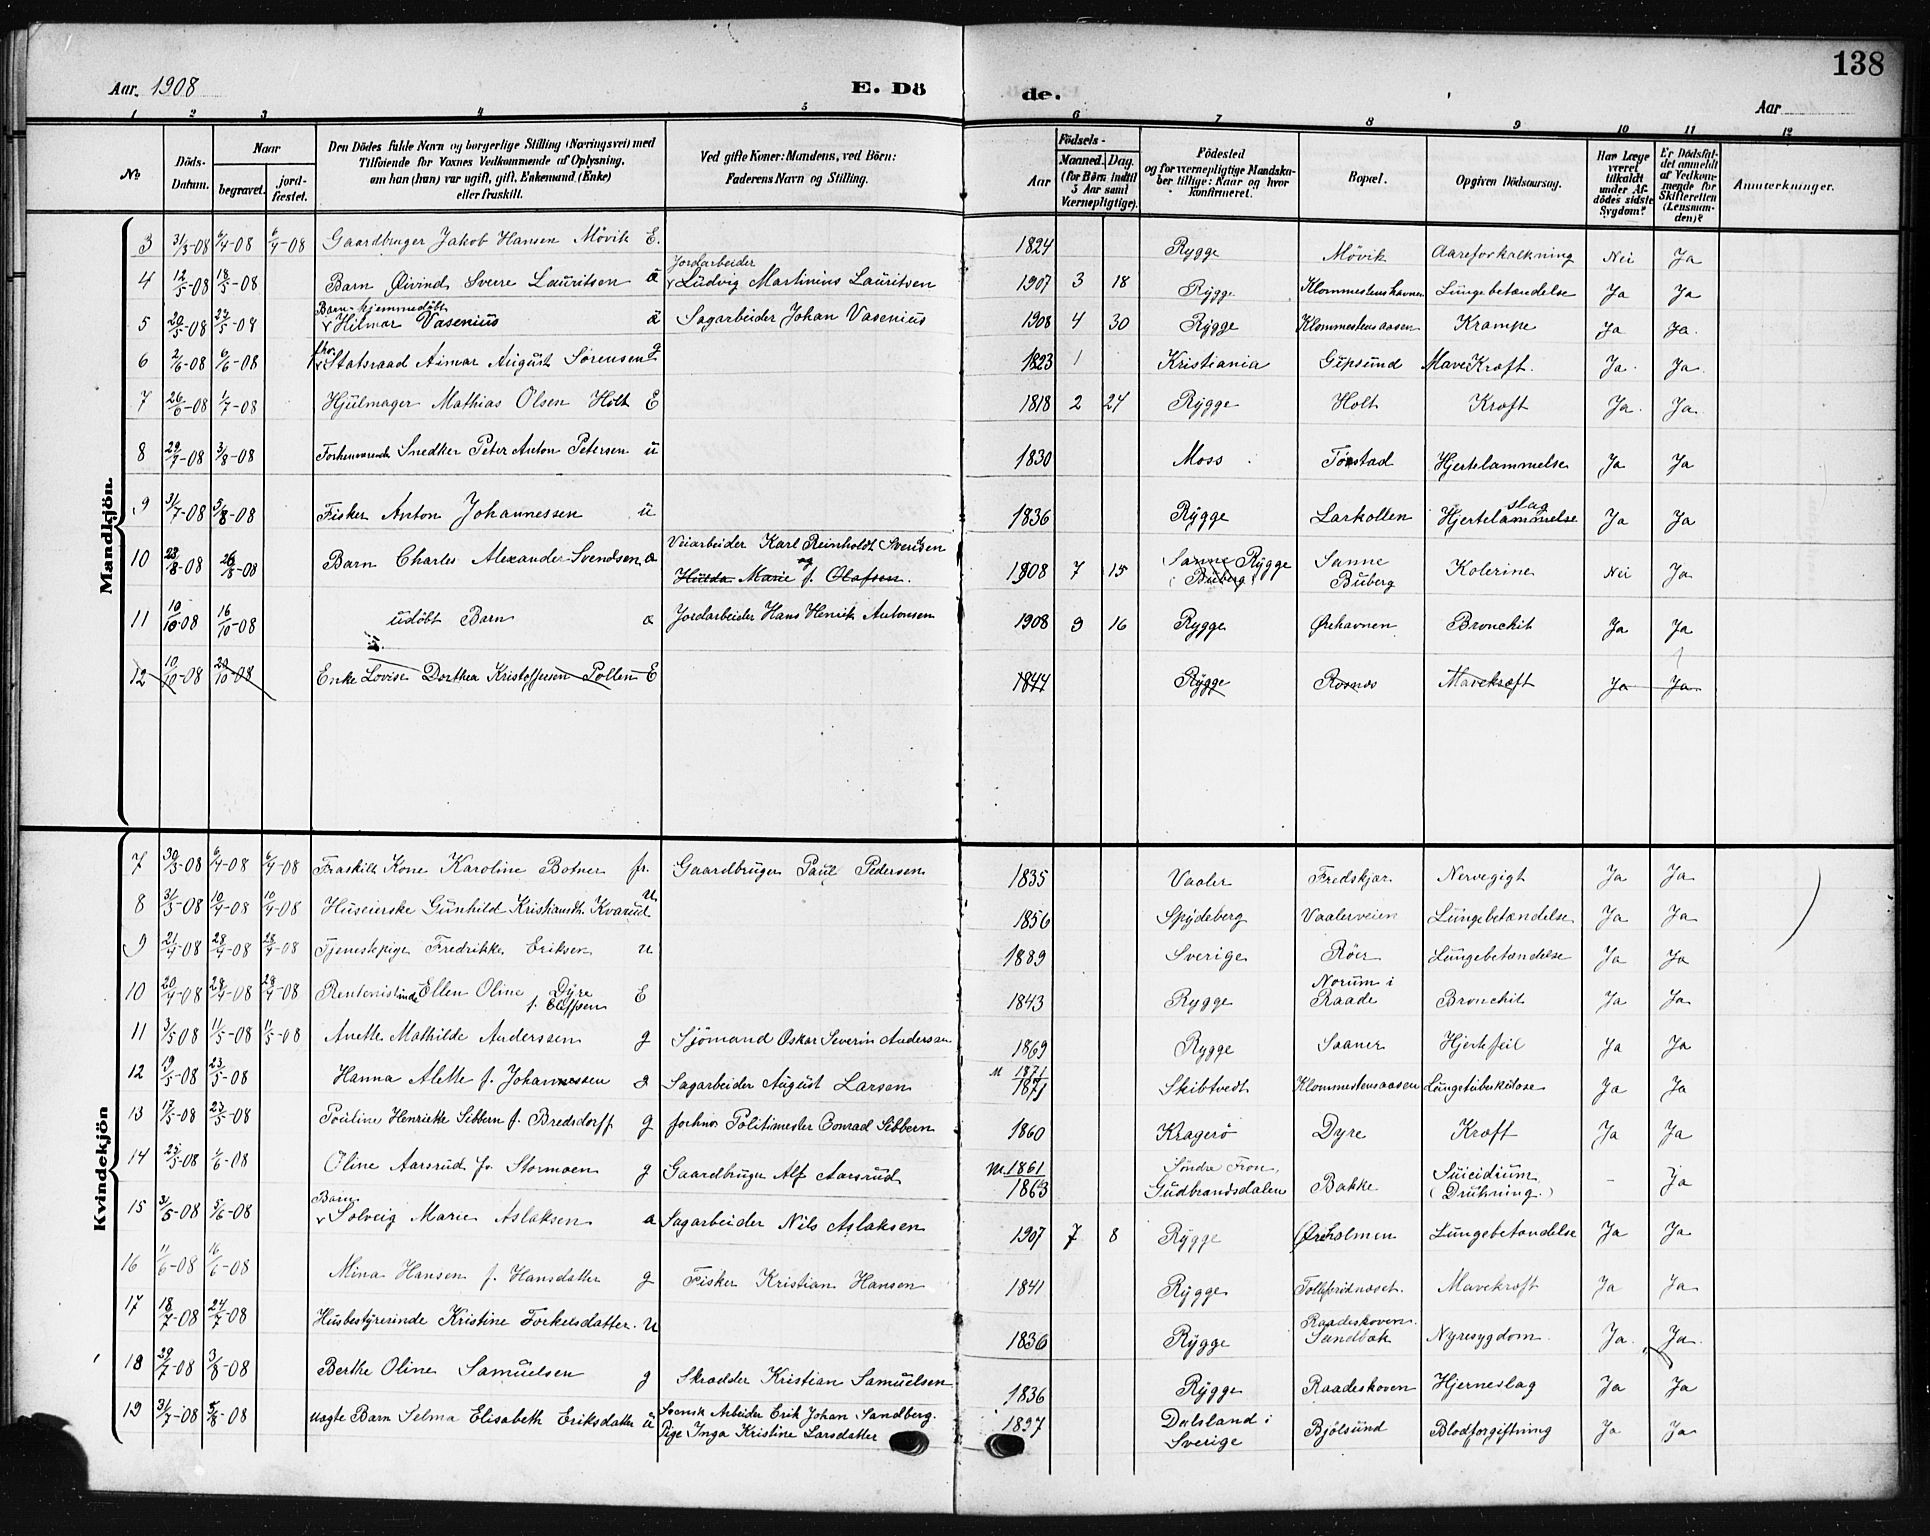 138
Aar. 1908 E. Dö de. Aar
1 2 3 4 5 6 7 8 9 10 11 12
No Döds-Datum. Naar begravet. jordfæstet. Den Dödes fulde Navn og borgerlige Stilling (Næringsvei) med Tilföiende for Voxnes Vedkommende af Oplysning, om han (hun) var ugift, gift, Enkemand (Enke) eller fraskilt. Ved gifte Koner: Mandens, ved Börn: Faderens Navn og Stilling. Födsels- Aar Maaned. Dag. (for Börn indtil 5 Aar samt Værnepligtige). Födested og for værnepligtige Mandskaber tillige: Naar og hvor konfirmeret. Bopæl. Opgiven Dödsaarsag. Har Læge været tilkaldt under Afdödes sidste Sygdom? Er Dödsfaldet anmeldt af Vedkommende for Skifteretten (Lensmanden)? Anmærkninger.
Mandkjön.
3 31/3-08 6/4-08 6/4-08 Gaardbruger Jakob Hansen Mövik E. 1824 Rygge Mövik Aareforkalkning Nei Ja
4 12/5-08 18/5-08 Barn Øivind Sverre Lauritsen Jordarbeider Ludvig Martinius Lauritsen 1907 3 18 Rygge Klommestenshavnen Lungebetændelse Ja Ja
5 20/5-08 27/5-08 Barn hjemmedöbt Hilmar Vasenius Sagarbeider Johan Vasenius 1908 4 30 Rygge Klommestensaasen Krampe Ja Ja
6 2/6-08 6/6-08 fhv. Statsraad Aimar August Sörensen g 1823 1 Kristiania Gipsund MaveKræft. Ja Ja
7 26/6-08 1/7-08 Hjulmager Mathias Olsen Holt E 1818 2 24 Rygge Holt Kræft Ja Ja
8 29/7-08 3/8-08 Forhenværende Snedker Peter Anton Petersen u 1830 Moss Tönstad Hjertelammelse Ja Ja
9 31/7-08 5/8-08 Fisker Anton Johannessen u 1836 Rygge Larkollen Hjertelammelse slag Ja Ja
10 23/8-08 26/8-08 Barn Charles Alexander Svendsen æ Veiarbeider Karl Reinholdt Svendsen og Hulda Marie f. Olafsen. 1908 7 15 Sanne Rygge (Buberg) Sanne Buberg Kolerine Nei Ja
11 10/10-08 16/10-08 udöbt Barn æ Jordarbeider Hans Henrik Antonsen 1908 9 16 Rygge Ørehavnen Bronchit Ja Ja
12 10/10-08 20/10-08 Enke Lovise Dorthea Kristoffersen Pollen E 1844 Rygge Rosnes Mavekræft Ja Ja
Kvindekjön
7 30/3-08 6/4-08 6/4-08 Fraskilt Kone Karoline Botner fr. Gaardbruger Paul Pedersen 1835 Vaaler Fredskjær Nervegigt Ja Ja
8 31/3-08 10/4-08 10/4-08 Huseierske Gunhild Kristiansdtr. Kvarud U 1856 Spydeberg Vaalerveien Lungebetændelse Ja Ja
9 21/4-08 28/4-08 28/4-08 Tjenestepige Fredrikke Eriksen u 1889 Sverige Röer Lungebetændelse Ja Ja
10 20/4-08 28/4-08 28/4-08 Rentenistinde Ellen Oline Dyre f. Eleffsen E 1843 Rygge Norum i Raade Bronchit Ja Ja
11 3/5-08 11/5-08 11/5-08 Anette Mathilde Anderssen g Sjömand Oskar Severin Anderssen 1869 Rygge Saaner Hjertefeil Ja Ja
12 19/5-08 23/5-08 Hanna Alette f. Johannessen g Sagarbeider August Larsen M 1871/1871 Skibtvedt Klommestensaasen Lungetuberkulose Ja Ja
13 17/5-08 23/5-08 Pouline Henriette Sibbern f. Bredsdorff g forhnv Politimester Conrad Sibbern 1860 Kragerö Dyre Kræft Ja Ja
14 25/5-08 1/6-08 Oline Aarsrud f. Stormoen g Gaardbruger Alf Aarsrud M. 1861/1863 Söndre Fron, Gudbrandsdalen Bakke Suicidium (Drukning.) - Ja
15 31/5-08 5/6-08 Barn Solveig Marie Aslaksen æ Sagarbeider Nils Aslaksen 1907 7 8 Rygge Øreholmen Lungebetændelse Ja Ja
16 11/6-08 16/6-08 Mina Hansen f. Hansdatter g Fisker Kristian Hansen 1841 Rygge Tollefsrödnæset. Mavekræft Ja Ja
17 18/7-08 24/7-08 Husbestyrerinde Kristine Torkelsdatter. U 1836 Rygge Raadeskoven. Sandbæk Nyresygdom. Ja Ja
18 29/7-08 3/8-08 Berthe Oline Samuelsen g Skrædder Kristian Samuelsen 1836 Rygge Raadeskoven Hjerneslag Ja Ja
19 31/7-08 5/8-08 uægte Barn Selma Elisabeth Eriksdatter u Svensk Arbeider Erik Johan Sandberg. Pige Inga Kristine Larsdatter 1897 Dalsland i Sverige Bjölsund Blodforgiftning Ja Ja